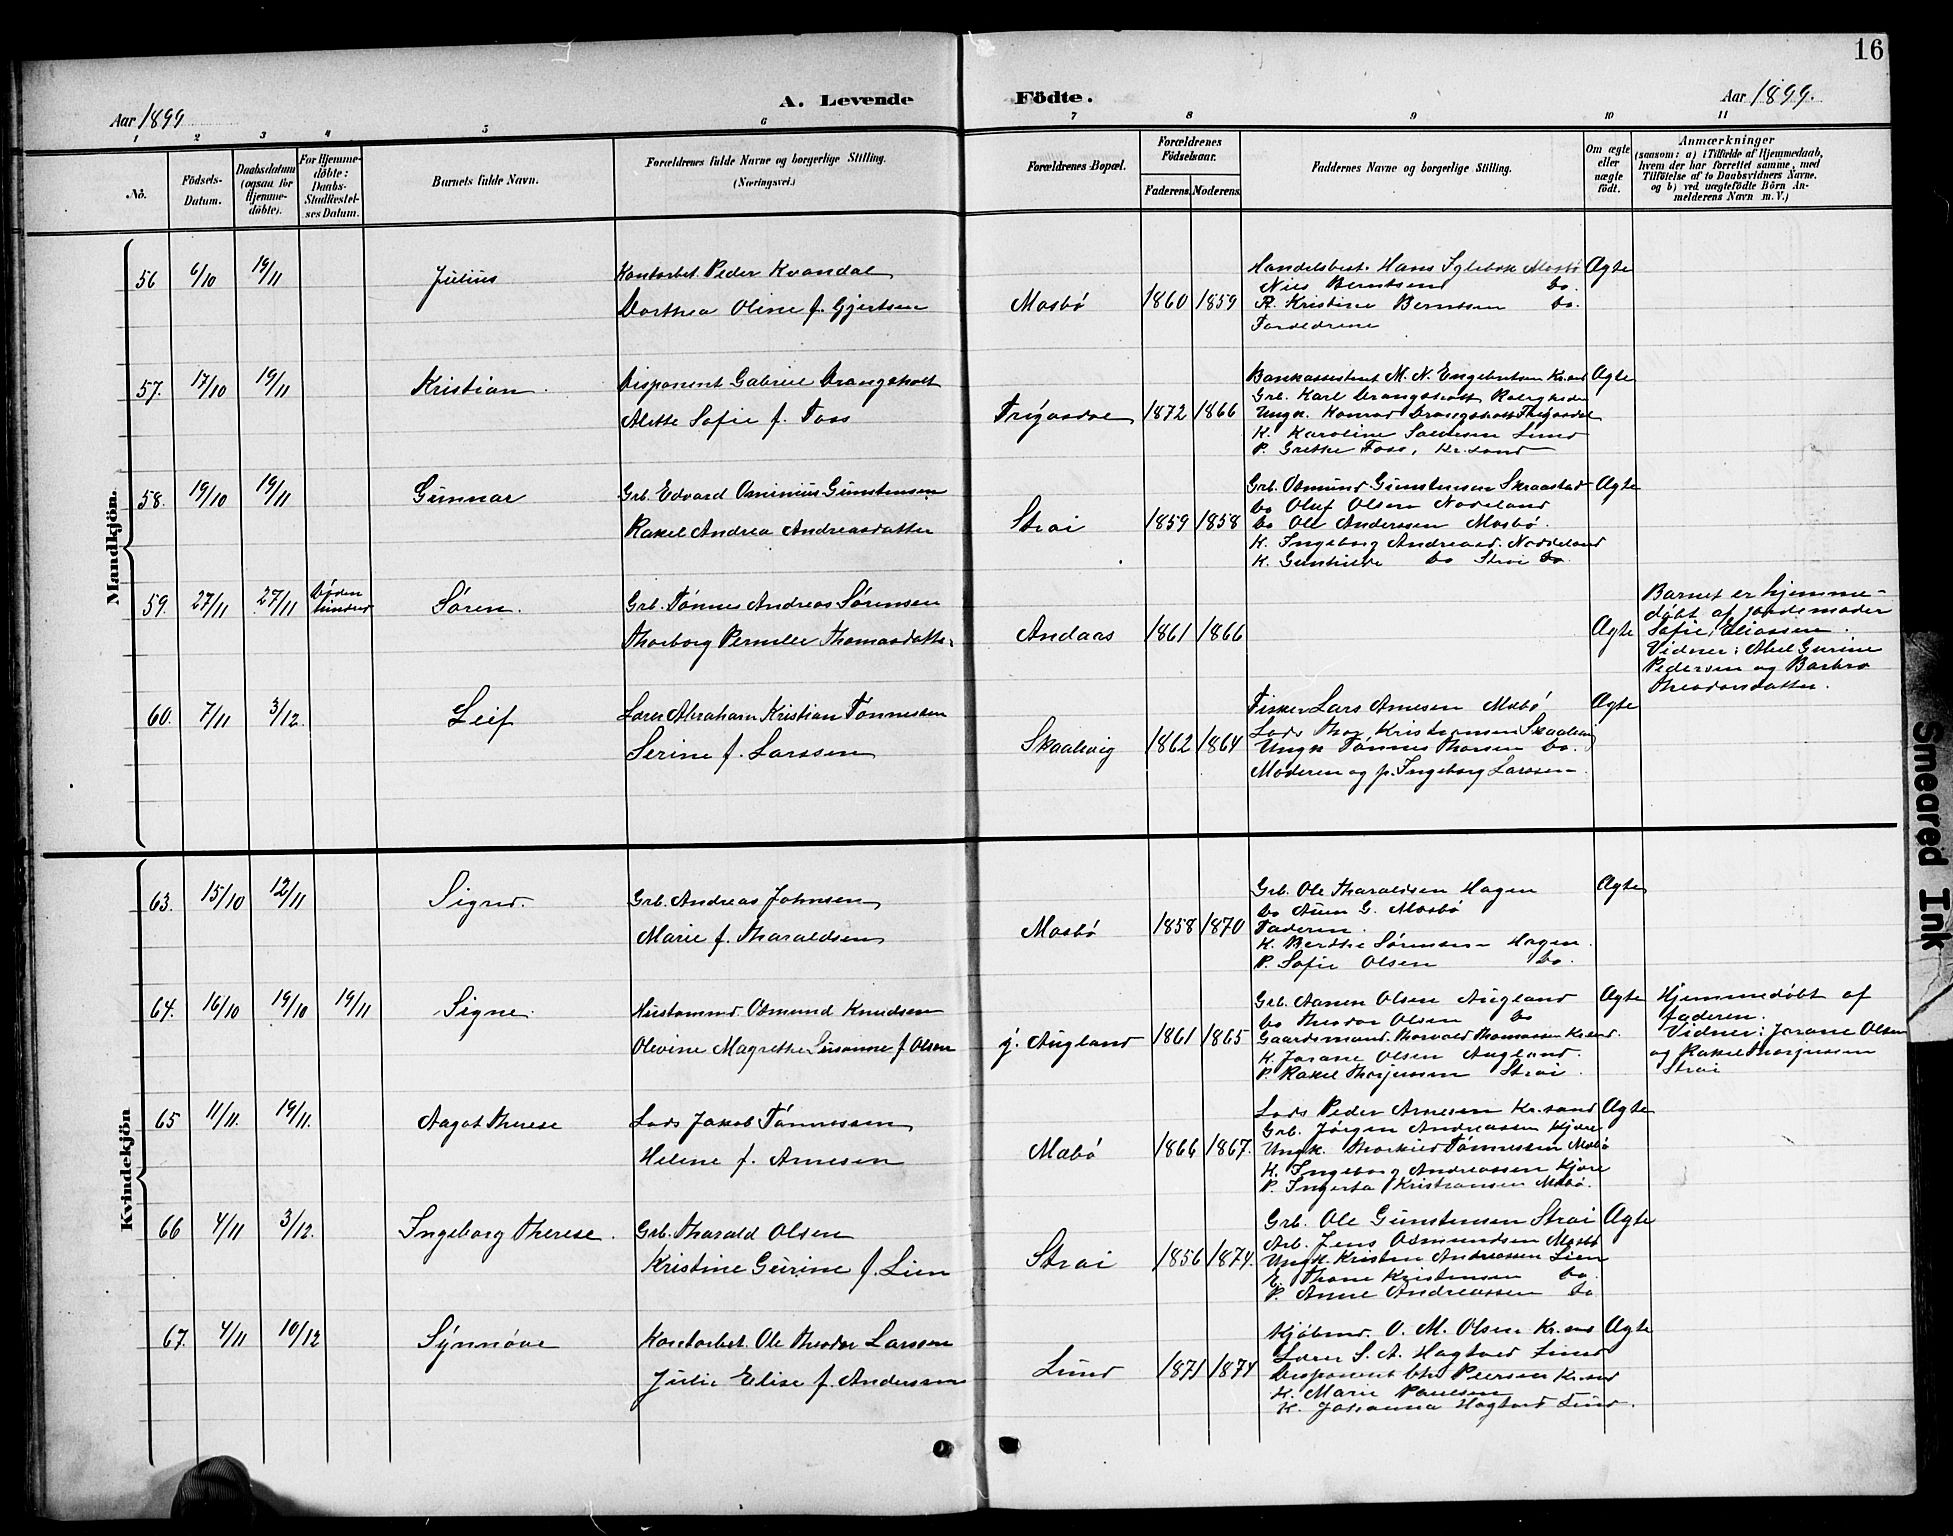 16
Aar 1899
A. Levende
Födte.
Aar 1899.
1 2 3 4 5 6 7 8 9 10 11
No.
Födsels-Datum.
Daabsdatum (ogsaa for Hjemmedöbte).
For Hjemmedöbte: Daabs-Stadfæstelses Datum.
Barnets fulde Navn.
Forældrenes fulde Navne og borgerlige Stilling.
(Næringsvei.)
Forældrenes Bopæl.
Forældrenes Födselsaar.
Faderens. Moderens.
Faddernes Navne og borgerlige Stilling.
Om ægte eller uægte födt.
Anmærkninger
(saasom: a) i Tilfælde af Hjemmedaab, hvem der har forrettet samme, med Tilföielse af to Daabsvidners Navne, og b) ved uægtefödte Börn Anmelderens Navn m. V.)
Mandkjön.
56 6/10 19/11 Julius
Kontorbet. Peder Kvandal
Dorthea Oline f. Gjertsen
Mosbø 1860 1859
Handelsbest. Hans Mosbø
Niels Berntsen do.
Kristine Berntsen do.
Forældrene
Ægte
57. 17/10 19/11 Kristian
Disponent Gabriel Drangsholt
Alette Sofie f. Foss
1872 1866
Bankassistent M. N. Engebretsen Kr.sand
Grb. Karl Drangsholt
Ungk. Konrad Drangsholt
K. Karoline Salvesen Lund
P. Grethe Foss, Kr.sand
Ægte
58. 19/10 19/11 Gunnar
Grb. Edvard Osminius Gunstensen
Rakel Andrea Andreasdatter
Strai 1859 1858
Grb. Osmund Gunstensen Skraastad
do Oluf Olsen Nodeland
do Ole Anderssen Mosbø.
K. Ingeborg Andreasd. Noddeland
K. Gunhilde do Strai do.
Ægte
59. 27/11 27/11 Døden hindred Søren.
Grb. Tønnes Andreas Sørensen
Thorborg Pernille Thomasdatter
Andaas 1861 1866
Ægte
Barnet er hjemme-
døbt af jordemoder
Sofie Eliassen.
Vidner: Abel Gurine
Pedersen og Barbro
Theodorsdatter.
60. 7/11 3/12. Leif
Lærer Abraham Kristian Tønnessen
Serine f. Larssen
Skaalevig 1862 1864
Fisker Lars Arnesen Mæbø
Lods Thor Kristiansen Skaalevig
Ungk Tønnes Thorsen do.
Moderen og p. Ingeborg Larssen
Ægte
Kvindekjön
63. 15/10 12/11 Signe.
Grb. Andreas Johnsen
Marie f. Tharaldsen
Mosbø 1858 1870
Grb. Ole Tharaldsen Hagen
do Auen G. Mosbø
Faderen.
K. Berthe Sørensen Hagen.
P. Sofie Olsen do.
Ægte
64. 16/10 19/10 19/11 Signe.
Husmand. Osmund Knudsen
Olevine Magrethe Susanne f. Olsen
j. Augland 1861 1865
Grb. Aanen Olsen Augland
do Theodor Olsen do
Gaardsmand. Thorvald Thomassen Kr.sand.
K. Jorane Olsen Augland.
P. Rakel Thorjussen Strai.
Ægte
Hjemmedøbt af
faderen.
Vidner: Jorane Olsen
og Rakel Thorjussen
Strai
65 11/11. 19/11. Aagot Therese
Lods Jakob Tønnessen
Helene f. Arnesen
Mæbø 1866 1867.
Lods Peder Arnesen Kr.sand
Grb. Jørgen Andreassen Kjære
Ungk. Thorkild Tønnessen Mæbø
K. Ingeborg Andreassen Kjære
P. Ingerta Kristiansen Mæbø.
Ægte
66 4/11 3/12. Ingeborg Therese.
Grb. Tharald Olsen
Kristine Gurine f. Lien
Strai 1856 1874.
Grb. Ole Gunstensen Strai
Arb. Jens Osmundsen Mosbø
Ungk. Kristen Andreassen Lien
E. Thone Kristensen do.
P. Anne Andreassen do
Ægte
67. 4/11 10/12 Synnøve
Kontorbet. Ole Theodor Larssen
Julie Elise f. Andersen
Lund 1871 1874
Kjøbmd. O. M. Olsen Kr.sand
Lærer S. A. Hagtved Lund
Disponent Chr. Petersen Kr.sand
K. Marie Paulsen
K. Johanna Hagtved Lund.
Ægte
Smeared Ink